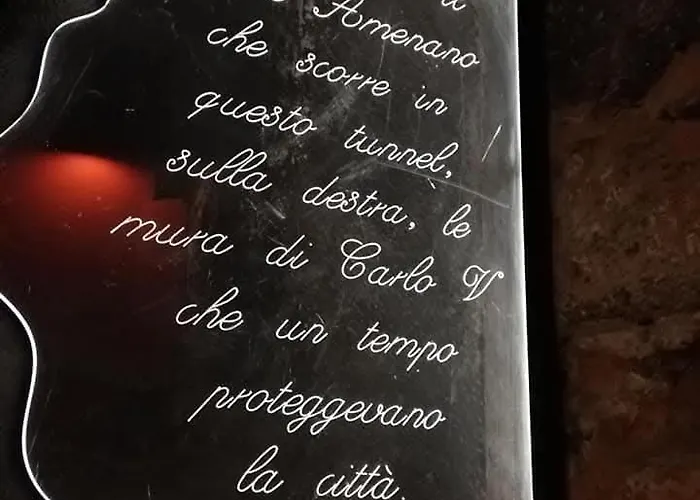 Amenano
che scorre in
questo tunnel,
sulla destra, le
mura di Carlo V
che un tempo
proteggevano
la città.